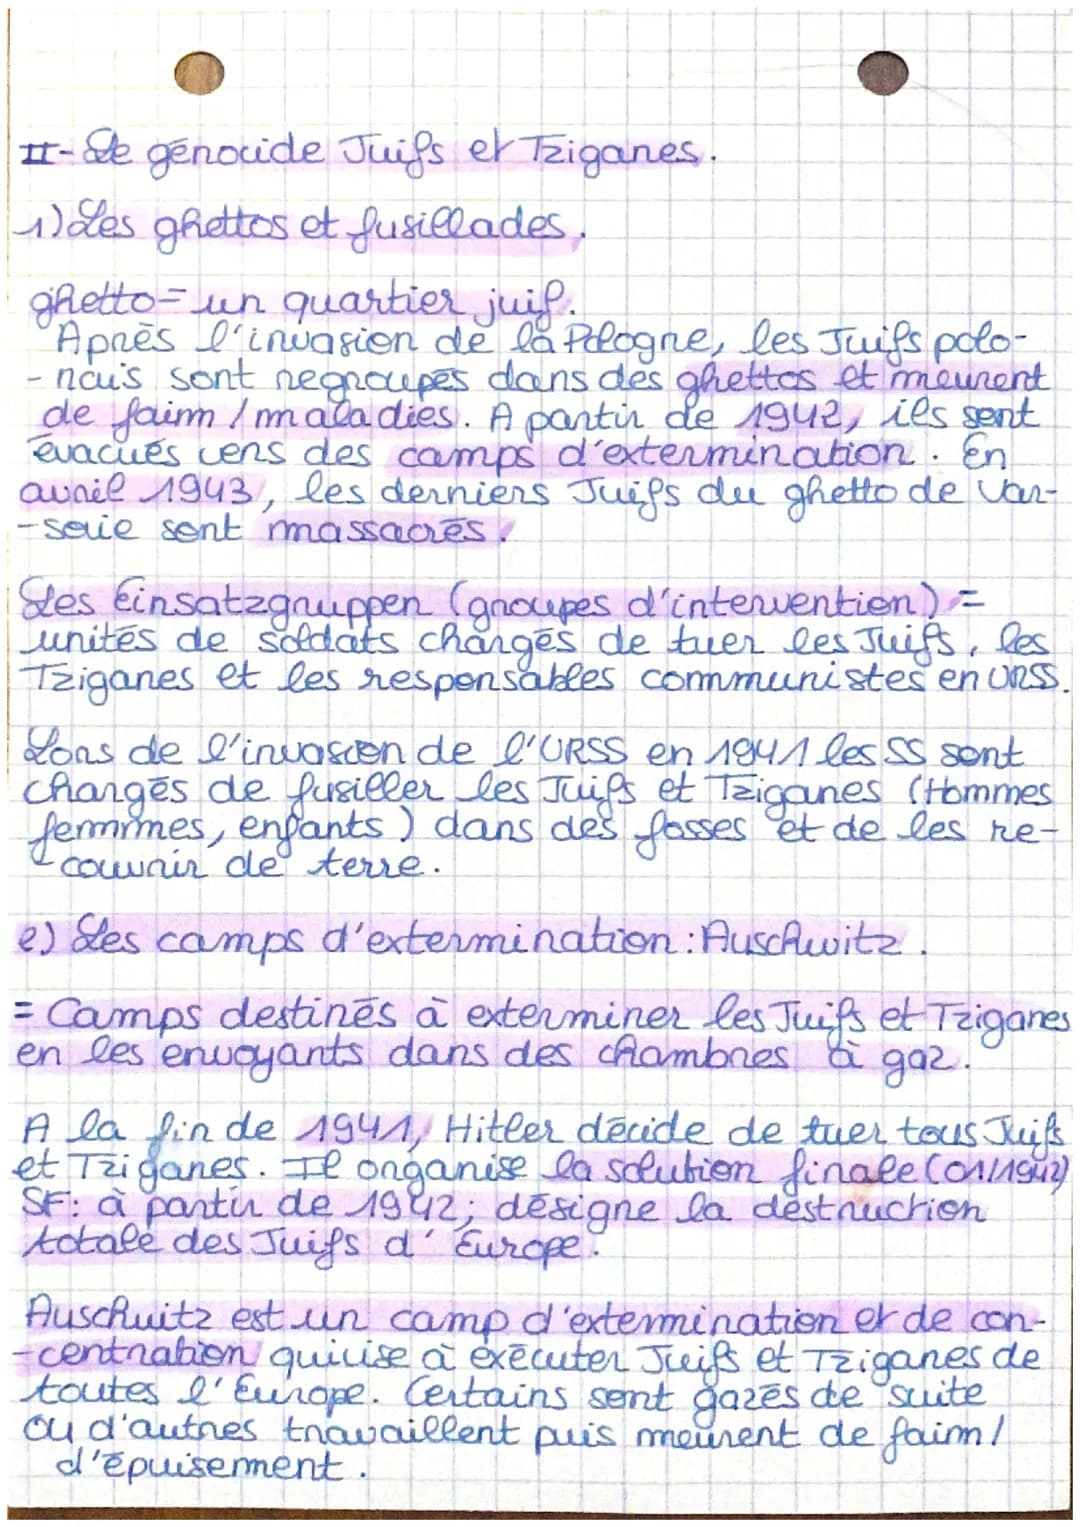 II- Le génocide Juifs et Tziganes.
1) Les ghettos et fusillades.
ghetto = un quartier juif.
Après l'invasion de la Pologne, les Juifs polo-
-nais sont regroupés dans des ghettos et meurent
de faim / maladies. A partir de 1942, ils sont
évacués vers des camps d'extermination. En
avril 1943, les derniers Juifs du ghetto de Var-
-sovie sont massacrés.
Les Einsatzgruppen (groupes d'intervention) =
unités de soldats chargés de tuer les Juifs, les
Tziganes et les responsables communistes en URSS.
Lors de l'invasion de l'URSS en 1941 les SS sont
chargés de fusiller les Juifs et Tziganes (Hommes
femmes, enfants) dans des fosses et de les re-
couvrir de terre.
2) Les camps d'extermination : Auschwitz.
= Camps destinés à exterminer les Juifs et Tziganes
en les envoyants dans des chambres à gaz.
A la fin de 1941, Hitler décide de tuer tous Juifs
et Tziganes. Il organise la solution finale (01/1942)
SF: à partir de 1942; désigne la destruction
totale des Juifs d'Europe.
Auschwitz est un camp d'extermination et de con-
-centration qui vise à exécuter Juifs et Tziganes de
toutes l'Europe. Certains sont gazés de suite
ou d'autres travaillent puis meurent de faim /
d'épuisement.